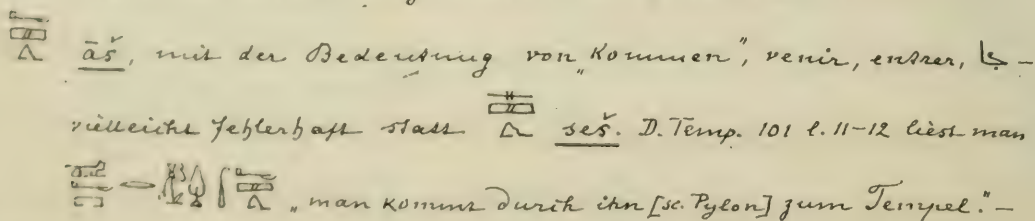 āš, mit der Bedeutung von „Kommen", venir, entrer, جا –
vielleicht fehlerhaft statt seš. D. Temp. 101 l. 11-12 liest man
„man kommt durch ihn [sc. Pylon] zum Tempel." –